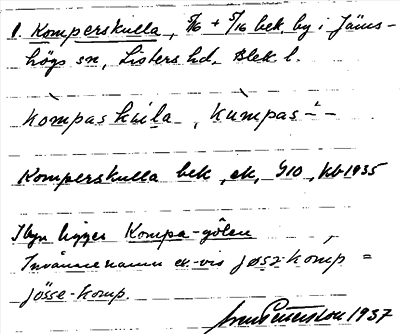 1. Komperskulla, 5/16 + 5/16 bek. by i Jäms-
högs sn, Listers hd. Blek l.
kòmpaskùla, kùmpas-
Komperskulla bek, ek, G10, kb 1935
I byn ligger Kompa-gölen
Invånarenamn ex-vis jøsə-komp =
jösse-komp.
1937